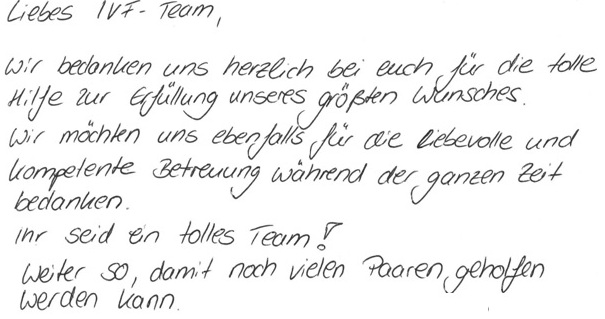 Liebes IVF-Team,
Wir bedanken uns herzlich bei euch für die tolle
Hilfe zur Erfüllung unseres größten Wunsches.
Wir möchten uns ebenfalls für die liebevolle und
kompetente Betreuung während der ganzen Zeit
bedanken.
Ihr seid ein tolles Team!
Weiter so, damit noch vielen Paaren geholfen
werden kann.